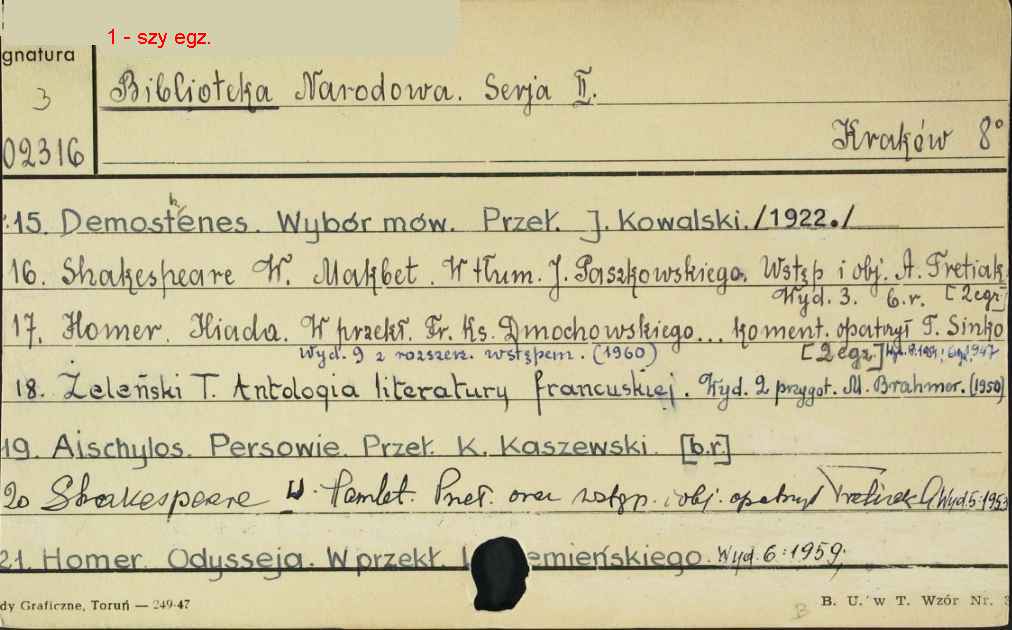 1 - szy egz.
gnatura
3
Biblioteka Narodowa. Serja II.
02316
Kraków 8°
15. Demosthenes. Wybór mów. Przeł. J. Kowalski. /1922./
16. Shakespeare W. Makbet. W tłum. J. Paszkowskiego. Wstęp i obj. A. Tretiak
Wyd. 3. b.r. [2 egz]
17. Homer. Iliada. W przekł. Fr. Ks. Dmochowskiego... koment. opatrzył T. Sinko
Wyd. 9 z rozszerz. wstępem. (1960) [2 egz.] 1947
18. Żeleński T. Antologia literatury francuskiej. Wyd. 2 przygot. M. Brahmer. (1950)
19. Aischylos. Persowie. Przeł. K. Kaszewski. [b.r.]
20 Shakespeare W. Hamlet. Przeł. oraz wstęp. i obj. opatrzył Tretiak A. Wyd. 5. 1953
21. Homer. Odysseja. W przekł. emieńskiego. Wyd. 6. 1959;
dy Graficzne, Toruń — 249-47
B. U. w T. Wzór Nr. 3